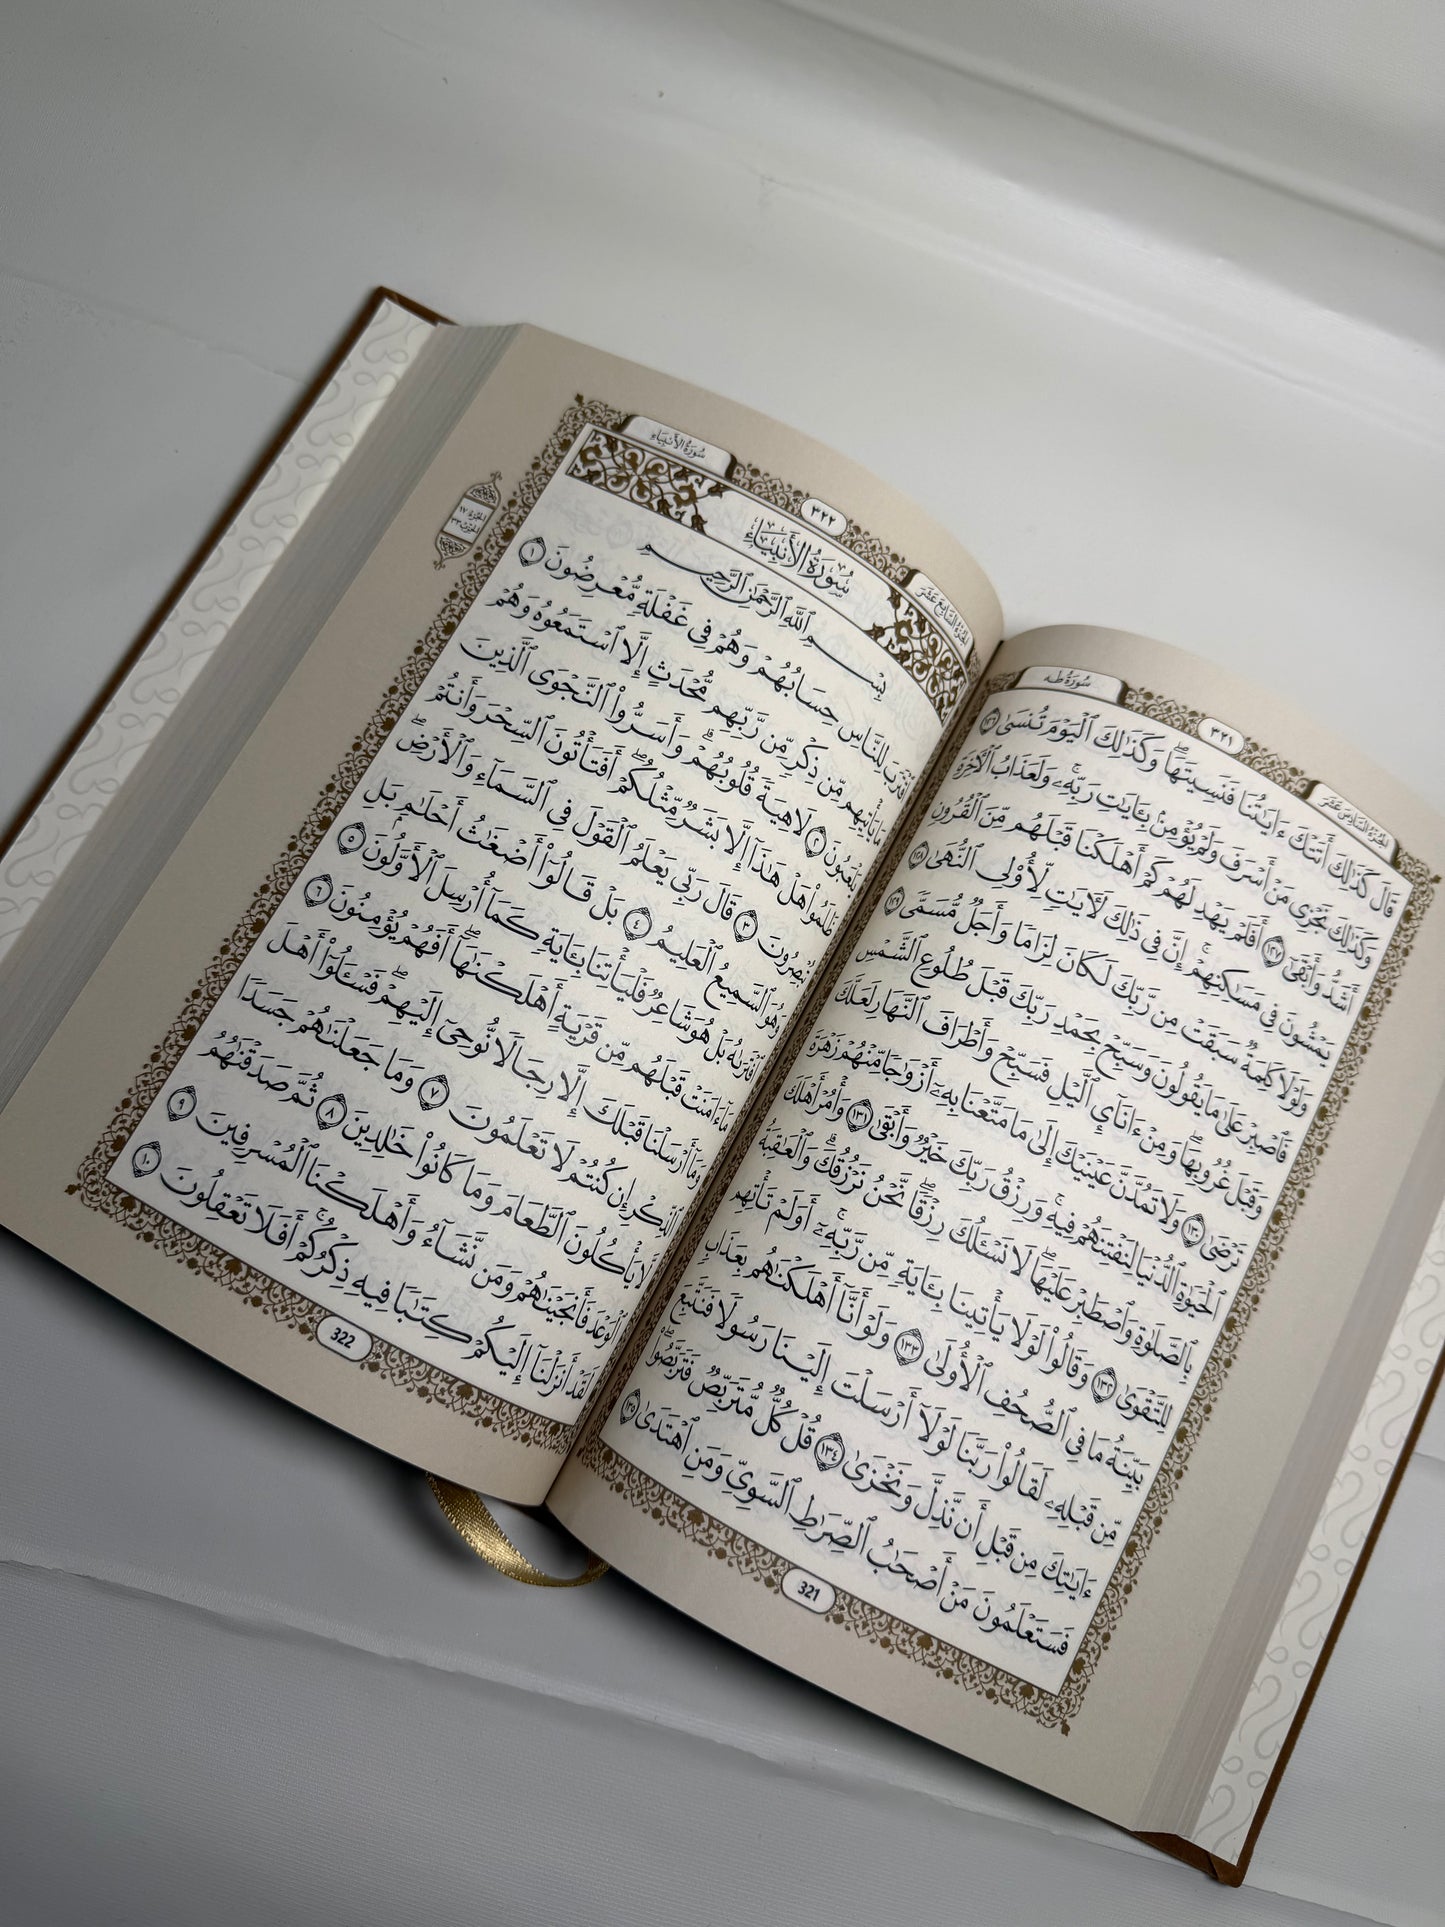 سُورَةُ طه
٣٢١
الجُزْءُ السَّادِسَ عَشَرَ
قَالَ كَذَٰلِكَ أَتَتْكَ ءَايَٰتُنَا فَنَسِيتَهَاۖ وَكَذَٰلِكَ ٱلْيَوْمَ تُنسَىٰ ١٢٦
وَكَذَٰلِكَ نَجْزِى مَنْ أَسْرَفَ وَلَمْ يُؤْمِنۢ بِـَٔايَٰتِ رَبِّهِۦۚ وَلَعَذَابُ ٱلْءَاخِرَةِ
أَشَدُّ وَأَبْقَىٰٓ ١٢٧ أَفَلَمْ يَهْدِ لَهُمْ كَمْ أَهْلَكْنَا قَبْلَهُم مِّنَ ٱلْقُرُونِ
يَمْشُونَ فِى مَسَٰكِنِهِمْۚ إِنَّ فِى ذَٰلِكَ لَءَايَٰتٍ لِّأُو۟لِى ٱلنُّهَىٰ ١٢٨
وَلَوْلَا كَلِمَةٌ سَبَقَتْ مِن رَّبِّكَ لَكَانَ لِزَامًا وَأَجَلٌ مُّسَمًّى ١٢٩
فَٱصْبِرْ عَلَىٰ مَا يَقُولُونَ وَسَبِّحْ بِحَمْدِ رَبِّكَ قَبْلَ طُلُوعِ ٱلشَّمْسِ
وَقَبْلَ غُرُوبِهَاۖ وَمِنْ ءَانَآئِ ٱلَّيْلِ فَسَبِّحْ وَأَطْرَافَ ٱلنَّهَارِ لَعَلَّكَ
تَرْضَىٰ ١٣٠ وَلَا تَمُدَّنَّ عَيْنَيْكَ إِلَىٰ مَا مَتَّعْنَا بِهِۦٓ أَزْوَٰجًا مِّنْهُمْ زَهْرَةَ
ٱلْحَيَوٰةِ ٱلدُّنْيَا لِنَفْتِنَهُمْ فِيهِۚ وَرِزْقُ رَبِّكَ خَيْرٌ وَأَبْقَىٰ ١٣١ وَأْمُرْ أَهْلَكَ
بِٱلصَّلَوٰةِ وَٱصْطَبِرْ عَلَيْهَاۖ لَا نَسْـَٔلُكَ رِزْقًاۖ نَّحْنُ نَرْزُقُكَۗ وَٱلْعَٰقِبَةُ
لِلتَّقْوَىٰ ١٣٢ وَقَالُوا۟ لَوْلَا يَأْتِينَا بِـَٔايَةٍ مِّن رَّبِّهِۦٓۚ أَوَلَمْ تَأْتِهِم
بَيِّنَةُ مَا فِى ٱلصُّحُفِ ٱلْأُولَىٰ ١٣٣ وَلَوْ أَنَّآ أَهْلَكْنَٰهُم بِعَذَابٍ
مِّن قَبْلِهِۦ لَقَالُوا۟ رَبَّنَا لَوْلَآ أَرْسَلْتَ إِلَيْنَا رَسُولًا فَنَتَّبِعَ
ءَايَٰتِكَ مِن قَبْلِ أَن نَّذِلَّ وَنَخْزَىٰ ١٣٤ قُلْ كُلٌّ مُّتَرَبِّصٌ فَتَرَبَّصُوا۟ۖ
فَسَتَعْلَمُونَ مَنْ أَصْحَٰبُ ٱلصِّرَٰطِ ٱلسَّوِىِّ وَمَنِ ٱهْتَدَىٰ ١٣٥
321
سُورَةُ الأَنبِيَاءِ
٣٢٢
الجُزْءُ السَّابِعَ عَشَرَ
الجُزْءُ ١٧
الحِزْبُ ٣٣
سُورَةُ الأَنبِيَاءِ
بِسْمِ ٱللَّهِ ٱلرَّحْمَٰنِ ٱلرَّحِيمِ
ٱقْتَرَبَ لِلنَّاسِ حِسَابُهُمْ وَهُمْ فِى غَفْلَةٍ مُّعْرِضُونَ ١
مَا يَأْتِيهِم مِّن ذِكْرٍ مِّن رَّبِّهِم مُّحْدَثٍ إِلَّا ٱسْتَمَعُوهُ وَهُمْ
يَلْعَبُونَ ٢ لَاهِيَةً قُلُوبُهُمْۗ وَأَسَرُّوا۟ ٱلنَّجْوَى ٱلَّذِينَ
ظَلَمُوا۟ هَلْ هَٰذَآ إِلَّا بَشَرٌ مِّثْلُكُمْۖ أَفَتَأْتُونَ ٱلسِّحْرَ وَأَنتُمْ
تُبْصِرُونَ ٣ قَالَ رَبِّى يَعْلَمُ ٱلْقَوْلَ فِى ٱلسَّمَآءِ وَٱلْأَرْضِۖ
وَهُوَ ٱلسَّمِيعُ ٱلْعَلِيمُ ٤ بَلْ قَالُوٓا۟ أَضْغَٰثُ أَحْلَٰمٍۭ بَلِ
ٱفْتَرَىٰهُ بَلْ هُوَ شَاعِرٌ فَلْيَأْتِنَا بِـَٔايَةٍ كَمَآ أُرْسِلَ ٱلْأَوَّلُونَ ٥
مَآ ءَامَنَتْ قَبْلَهُم مِّن قَرْيَةٍ أَهْلَكْنَٰهَآۖ أَفَهُمْ يُؤْمِنُونَ ٦
وَمَآ أَرْسَلْنَا قَبْلَكَ إِلَّا رِجَالًا نُّوحِىٓ إِلَيْهِمْۖ فَسْـَٔلُوٓا۟ أَهْلَ
ٱلذِّكْرِ إِن كُنتُمْ لَا تَعْلَمُونَ ٧ وَمَا جَعَلْنَٰهُمْ جَسَدًا
لَّا يَأْكُلُونَ ٱلطَّعَامَ وَمَا كَانُوا۟ خَٰلِدِينَ ٨ ثُمَّ صَدَقْنَٰهُمُ
ٱلْوَعْدَ فَأَنجَيْنَٰهُمْ وَمَن نَّشَآءُ وَأَهْلَكْنَا ٱلْمُسْرِفِينَ ٩
لَقَدْ أَنزَلْنَآ إِلَيْكُمْ كِتَٰبًا فِيهِ ذِكْرُكُمْۚ أَفَلَا تَعْقِلُونَ ١٠
322